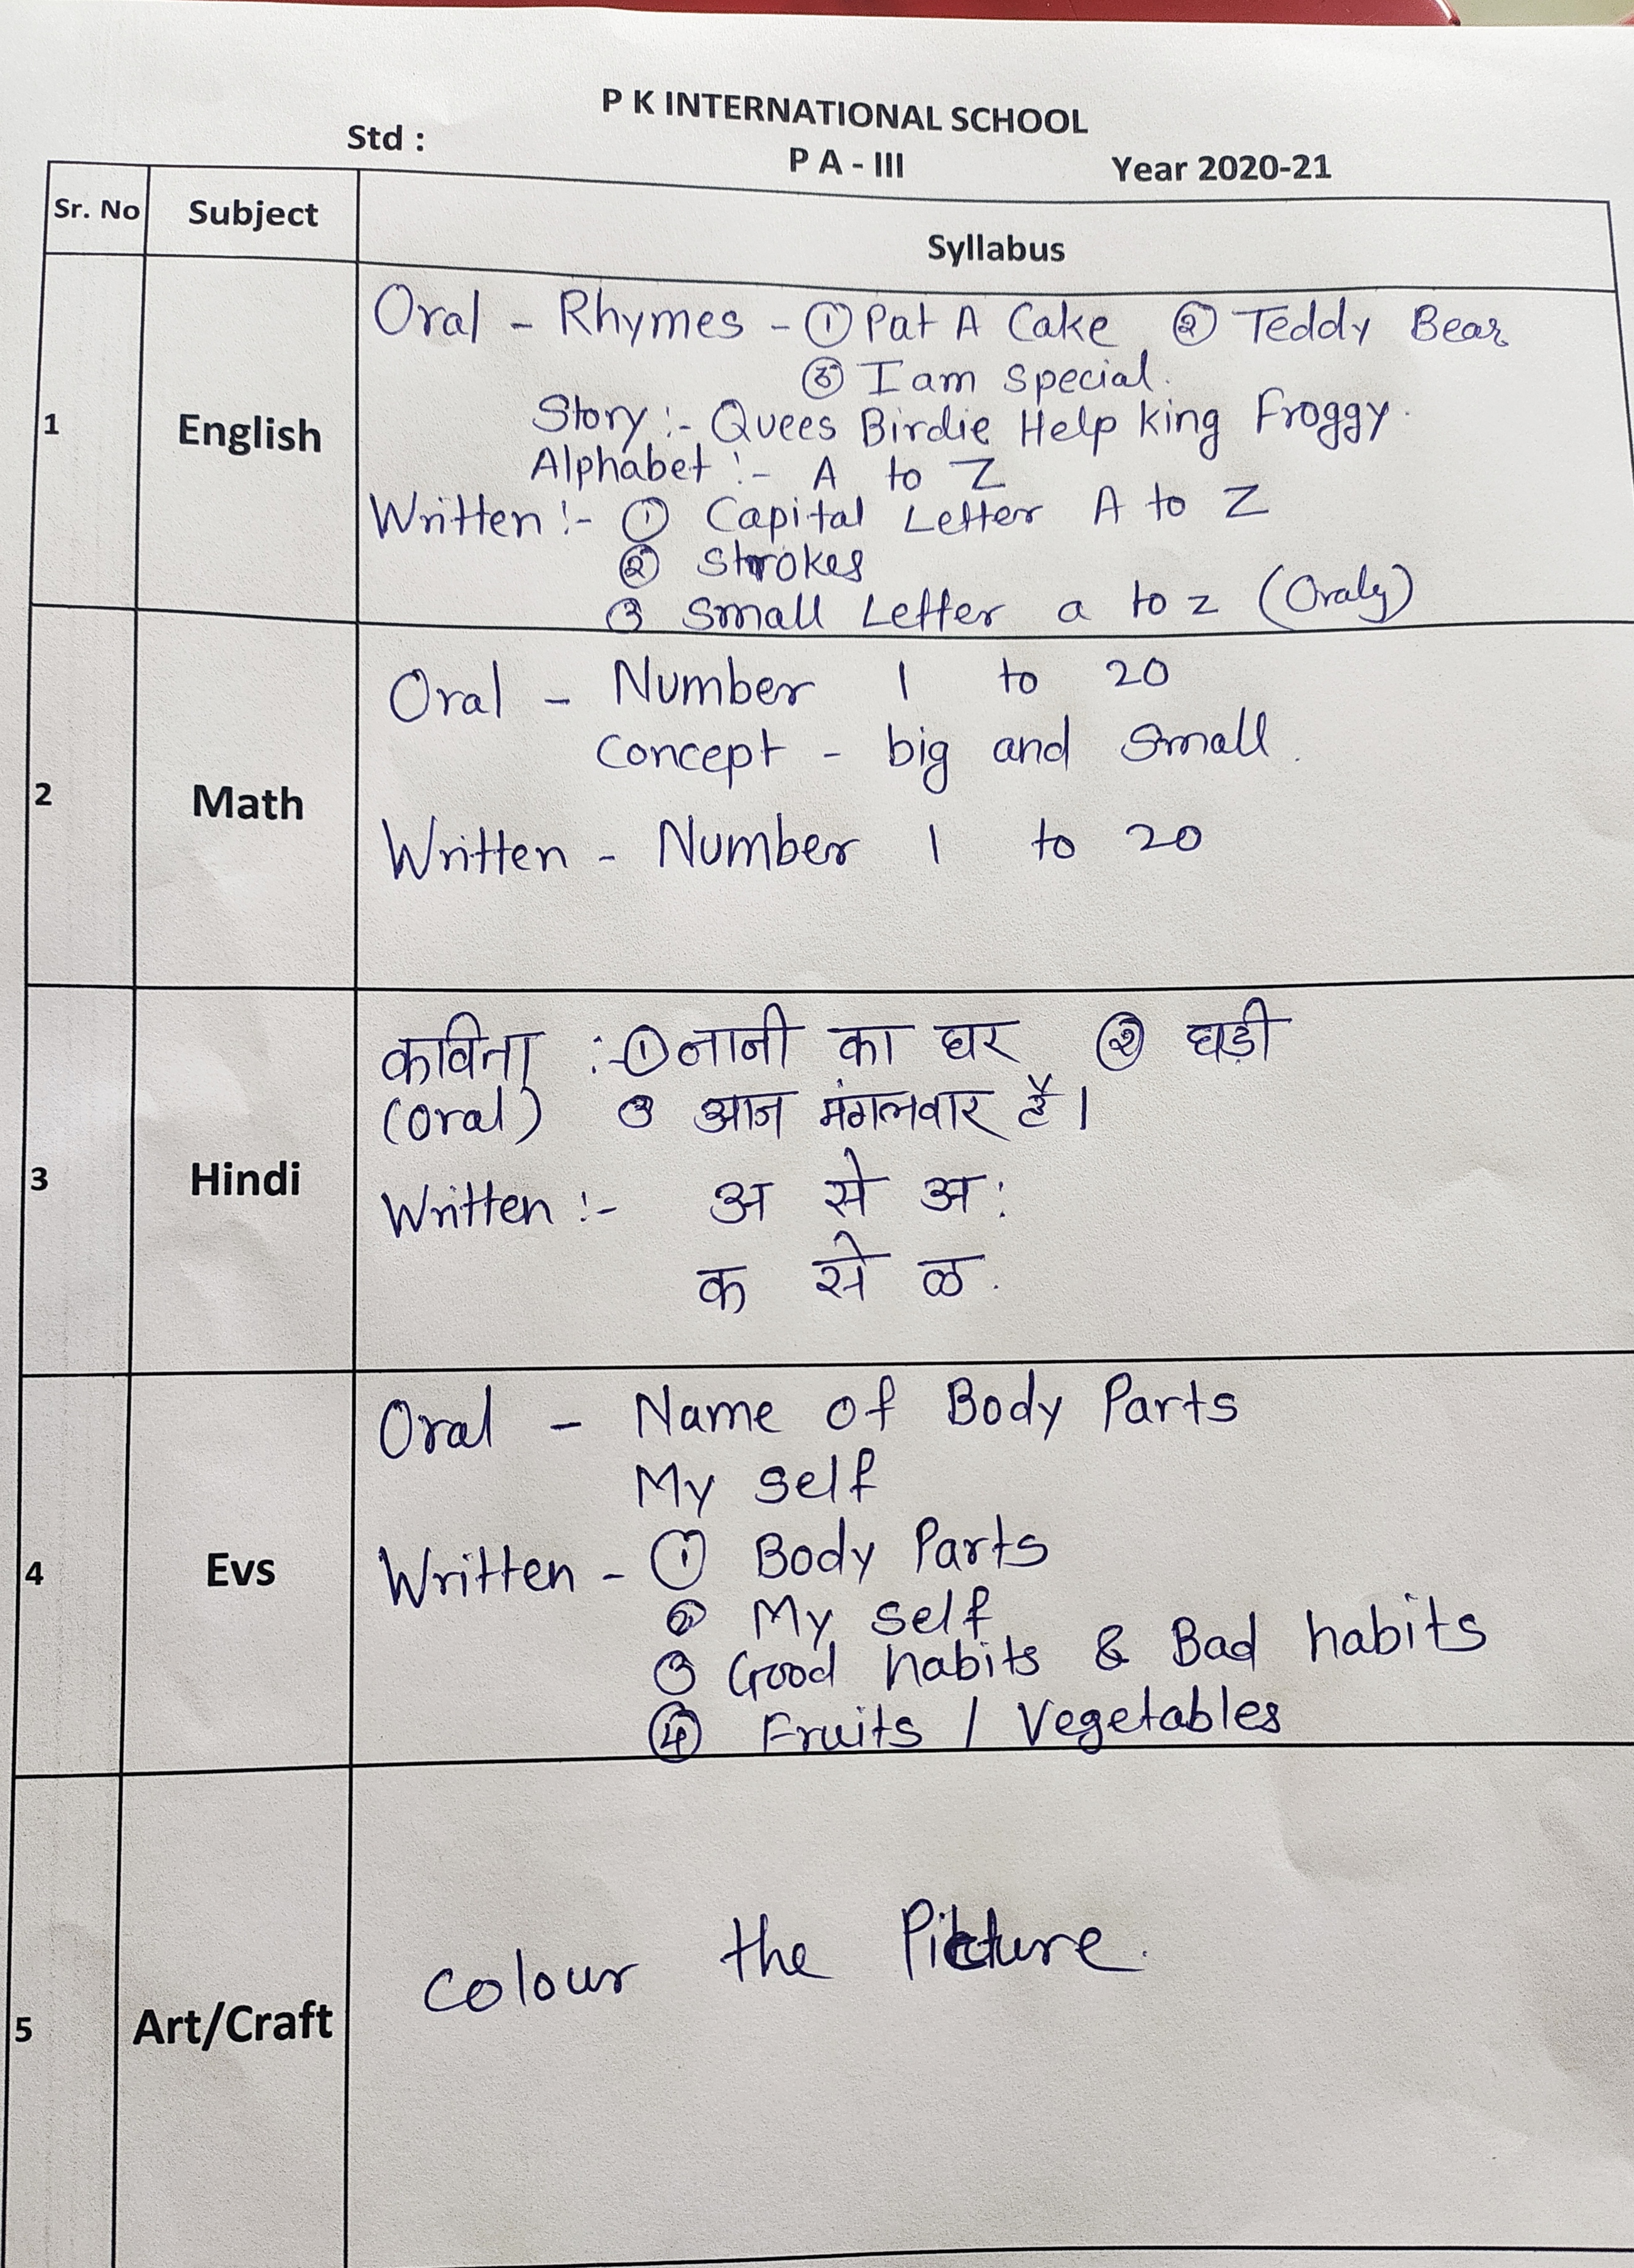 P K INTERNATIONAL SCHOOL
Std :
P A - III
Year 2020-21
Sr. No Subject Syllabus
1 English
Oral - Rhymes - ① Pat A Cake ② Teddy Bear
③ I am special.
Story :- Quees Birdie Help king Froggy.
Alphabet :- A to Z
Written :- ① Capital Letter A to Z
② Strokes
③ Small Letter a to z (Oraly)
2 Math
Oral - Number 1 to 20
Concept - big and Small.
Written - Number 1 to 20
3 Hindi
कविता :- ① नानी का घर ② घड़ी
(Oral) ③ आज मंगलवार है।
Written :- अ से अ:
क से ळ.
4 Evs
Oral - Name of Body Parts
My self
Written - ① Body Parts
② My self
③ Good habits & Bad habits
④ Fruits / Vegetables
5 Art/Craft
Colour the Picture.